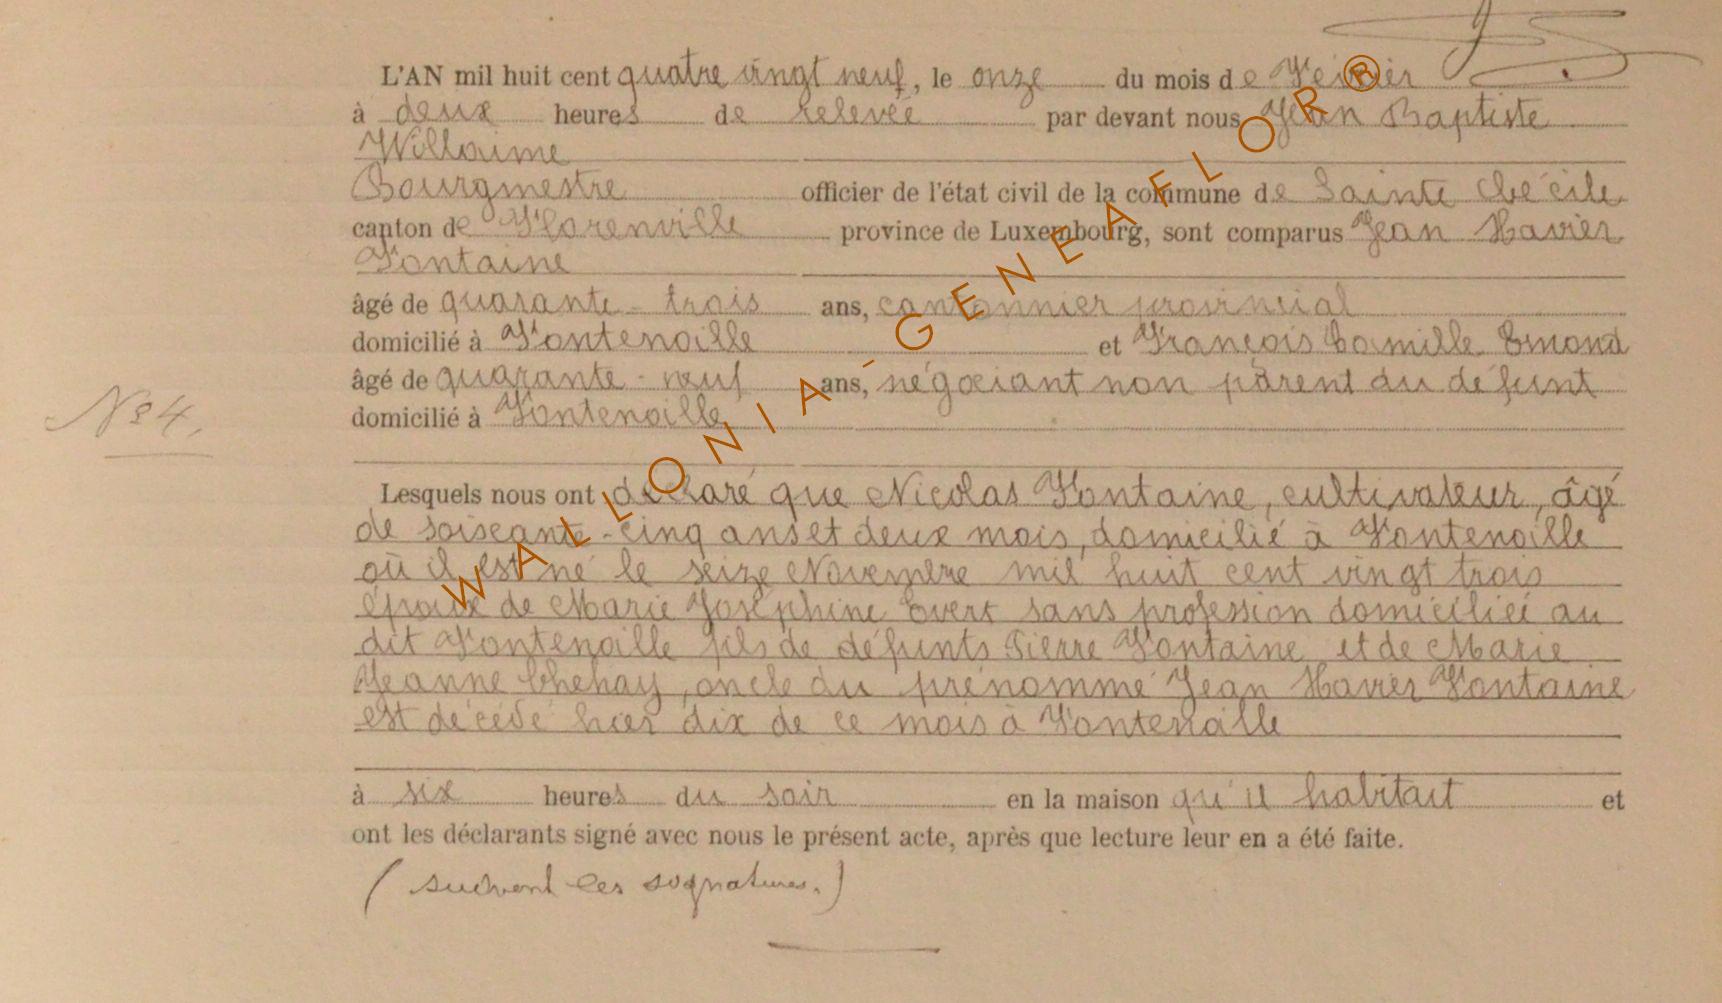 L'AN mil huit cent quatre vingt neuf, le onze du mois de Février
à deux heures de relevée par devant nous Jean Baptiste
Willaime
Bourgmestre officier de l'état civil de la commune de Sainte Cécile
canton de Florenville province de Luxembourg, sont comparus Jean Xavier
Fontaine
âgé de quarante-trois ans, cantonnier provincial
domicilié à Fontenoille et François Camille Emond
âgé de quarante-neuf ans, négociant non parent du défunt
N° 4.
domicilié à Fontenoille
Lesquels nous ont déclaré que Nicolas Fontaine, cultivateur, âgé
de soixante-cinq ans et deux mois, domicilié à Fontenoille
où il est né le seize Novembre mil huit cent vingt trois
époux de Marie Joséphine Evert sans profession domiciliée au
dit Fontenoille fils de défunts Pierre Fontaine et de Marie
Jeanne Chehay, oncle du prénommé Jean Xavier Fontaine
est décédé hier dix de ce mois à Fontenoille
à six heures du soir en la maison qu'il habitait et
ont les déclarants signé avec nous le présent acte, après que lecture leur en a été faite.
(suivent les signatures.)
WALLONIA-GENEAFLOR®